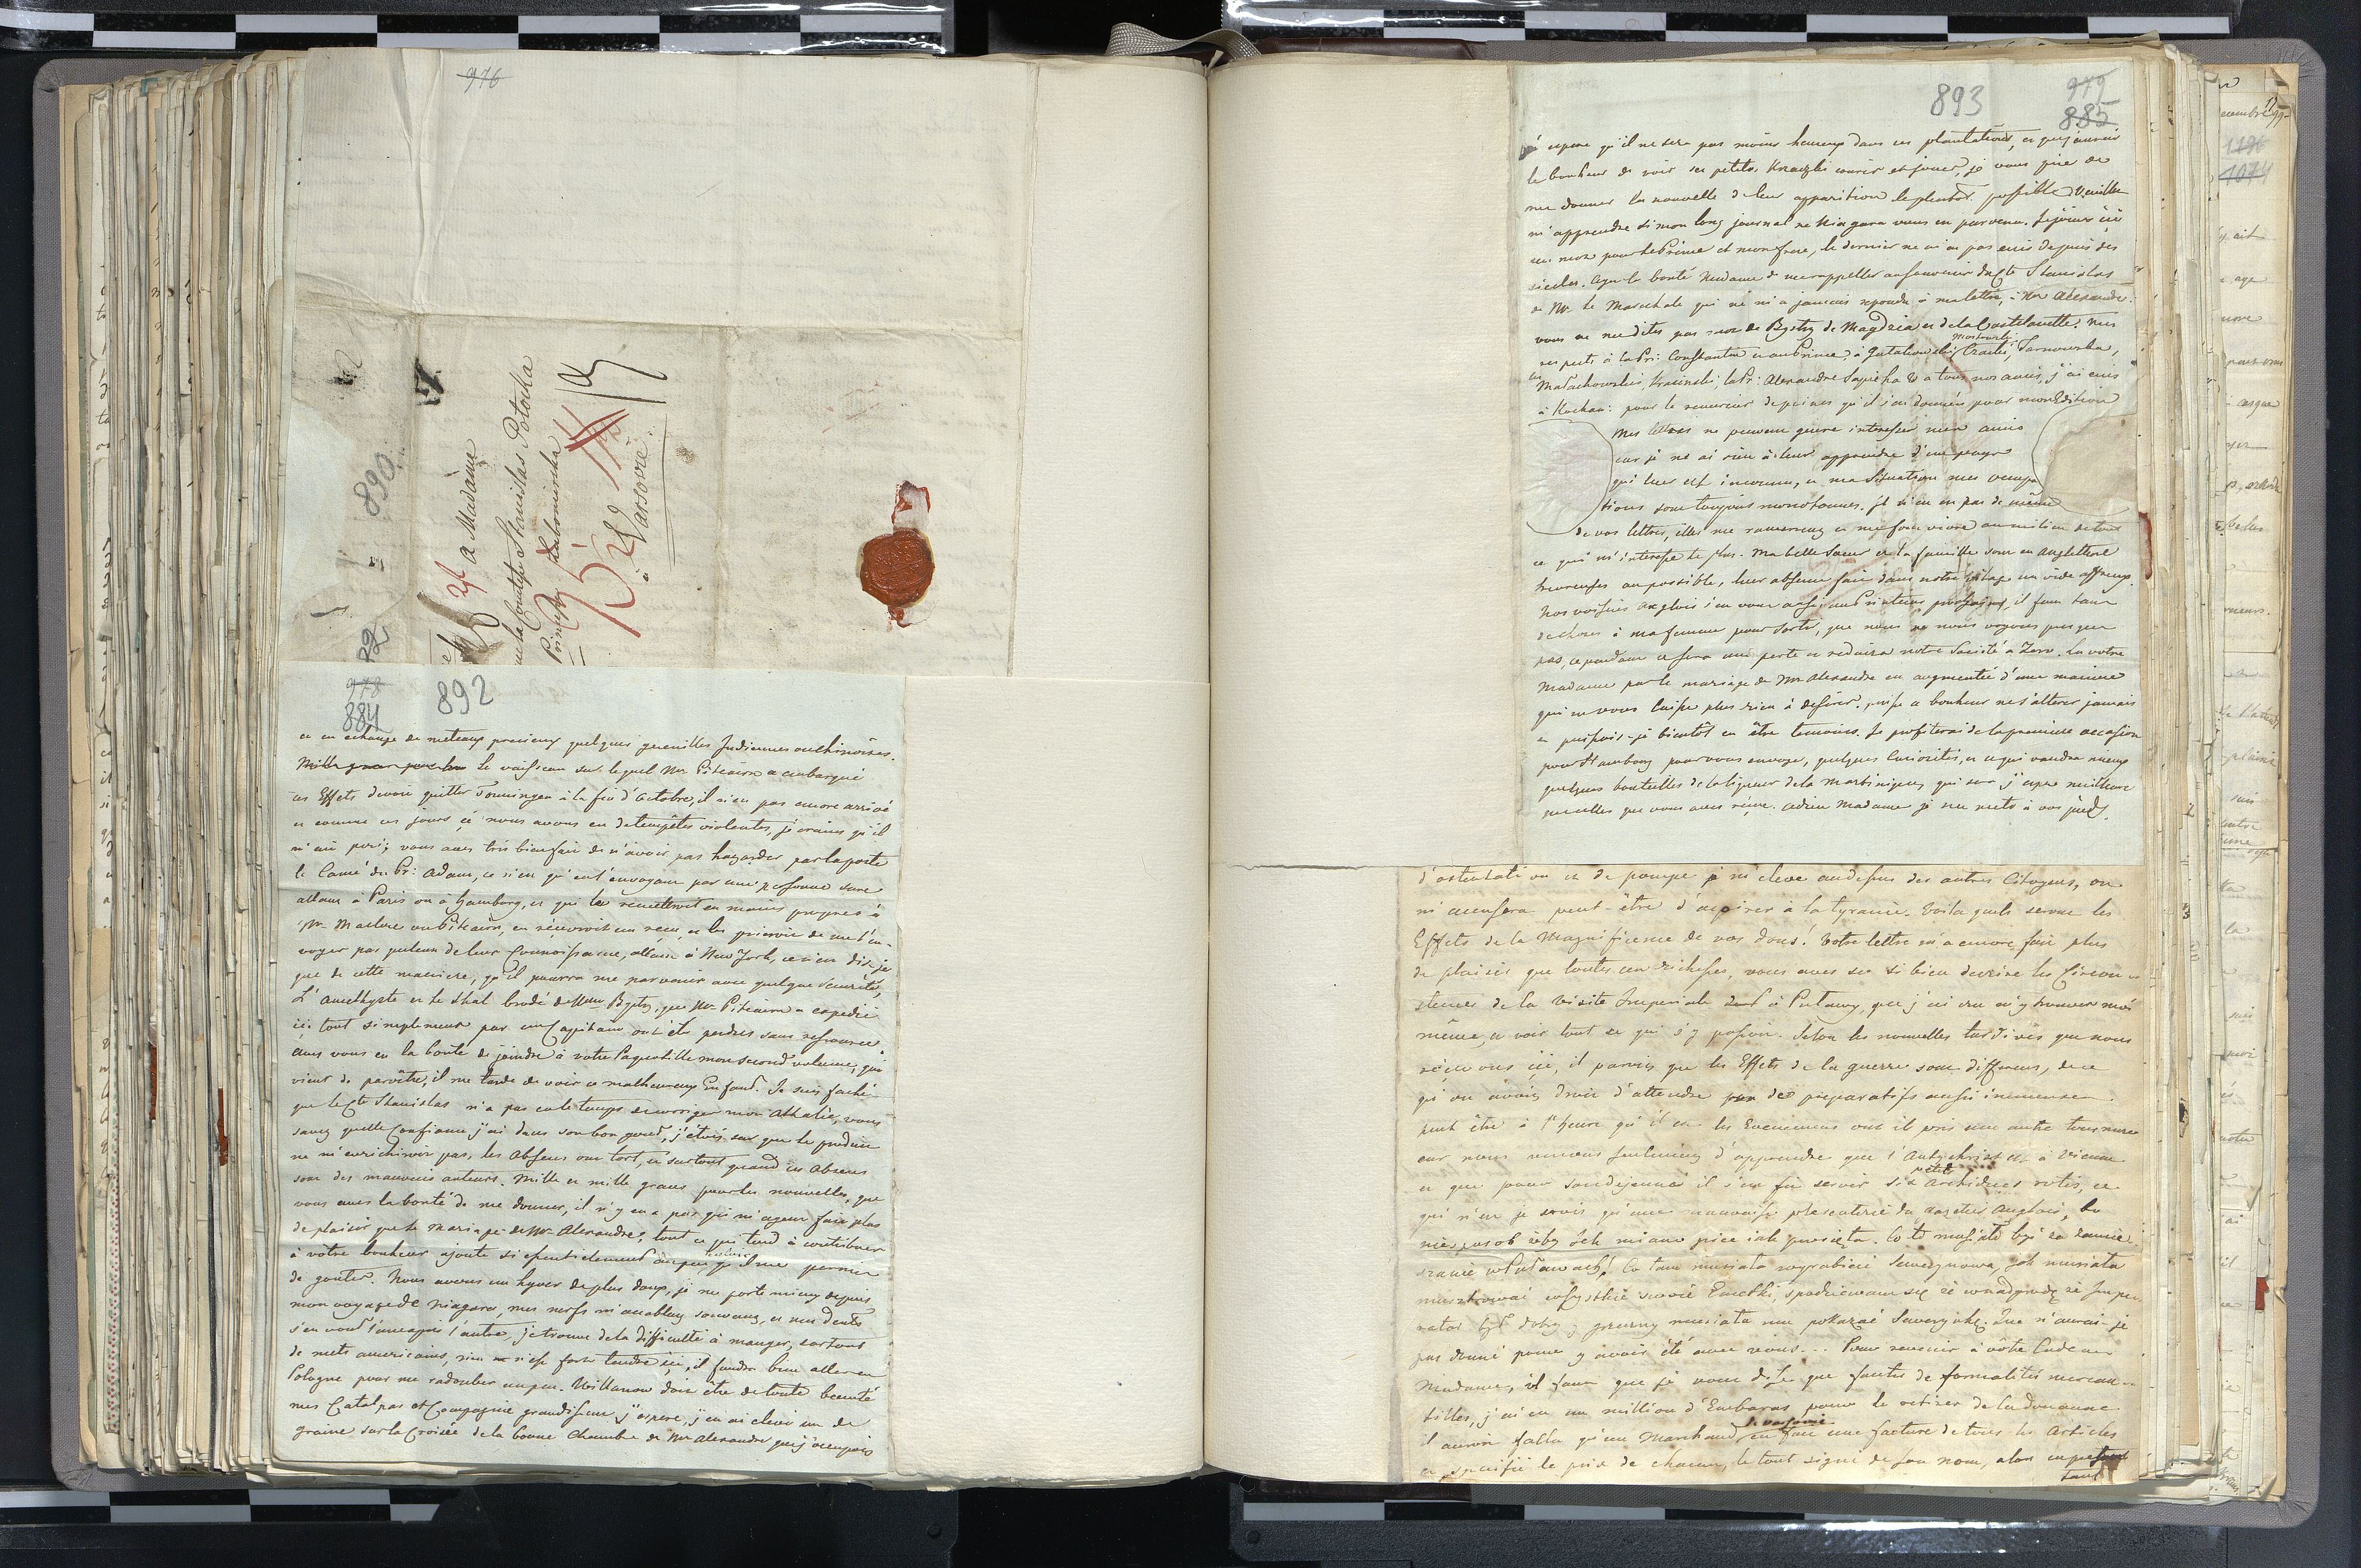 976
890
a Madame
Madame la Comtesse Stanislas Potocka
Princesse Lubomirska
à Varsovie
978
884
892
et en echange de meteaux precieux quelques guenilles Indiennes ou chinoises.
Le vaisseau sur lequel Mr Pitcairn a embarqué
ces Effets devoit quitter Tonningen à la fin d'Octobre, il n'est pas encore arrivé
et comme ces jours çi nous avons eu de tempêtes violentes, je crains qu'il
n'ait peri; vous avez très bien fait de n'avoir pas hazarder par la poste
le Camé du Pr: Adam, ce n'est qu'en l'envoyant par une personne sure
allant à Paris ou à Hambourg, et qui le remetteroit en mains propres à
Mr Maclure ou Pitcairn, en réçevroit un reçu, et les prieroit de me l'en-
voyer par quelcun de leur Connoissance, allant à New York, ce n'est dis-je
que de cette maniere, qu'il pourra me parvenir avec quelque seureté,
L'Amethyste et le Shal brodé de Mme Bystry, que Mr Pitcairn a expedié
içi tout simplement par un Capitaine ont été perdus sans ressource.
Aves vous eu la bonté de joindre à votre Paquotille mon second volume, qui
vient de paroître, il me tarde de voir ce malheureux Enfant. Je suis faché
que le Cte Stanislas n'a pas eu le temps de corriger mon Athalie, vous
savez quelle Confiance j'ai dans son bon gout, j'étois sur que le produit
ne m'enrichiroit pas, les Absens ont tort, et surtout quand ces Absens
sont des mauvais auteurs. Mille et mille graces pour les nouvelles, que
vous avez la bonté de me donner, il n'y en a pas qui m'ayent fait plus
de plaisir que le mariage de Mr Alexandre; tout ce qui tend à contribuer
à vôtre bonheur ajoute si essentiellement au peu qu'il me permis
de gouter. Nous avons un hyver de plus doux, je me porte mieux depuis
mon voyage de Niagara, mes nerfs m'accablent souvent, et mes dents
s'en vont l'une après l'autre, je trouve de la difficulté à manger, surtout
de mets americains, rien n'est fort tendre içi, il faudra bien aller en
Pologne pour me radouber un peu. Willanow doit être de toute beauté
mes Catalpas et Compagnie grandissent j'espere, j'en ai elevé un de
graine sur la Croisée de la bonne Chambre de Mr Alexandre que j'occupois
893
979
885
j'espere qu'il ne sera pas moins heureux dans ces plantations, et que j'aurai
le bonheur de voir ses petits Krzaczki courir et jouer, je vous prie de
me donner la nouvelle de leur apparition le plutot possible. Veuillez
m'apprendre si mon long journal de Niagara vous est parvenu. Je joins içi
un mot pour le Prince et mon frere, le dernier ne m'a pas ecrit depuis des
siecles. Ayez la bonté Madame de me rappeller au souvenir du Cte Stanislas
de Mr le Marechale qui ne m'a jamais repondu à ma lettre, à Mr Alexandre.
vous ne me dites pas mot de Bystry de Magdzia et de la Castelanette. mes
respects à la Pr: Constantin et au Prince, à Gutakowski, Czacki, Mostowski, Tarnowska,
les Małachowskis, Krasinski, la Pr: Alexandre Sapieha & a tous nos amis, j'ai ecris
à Kochan: pour le remercier de peines qu'il s'est données pour mon Edition
Mes lettres ne peuvent guere interesser mes amis
car je ne ai rien à leur apprendre d'un pays
qui leur est inconnu, et ma Situation mes occupa
tions sont toujours monotonnes. Il n'en est pas de même
de vos lettres, elles me ramenent et me font vivre au milieu de tout
ce qui m'interesse le plus. Ma belle Soeur et la famille sont en Angleterre
heureuses au possible, leur absence fait dans notre Village un vide affreux.
Nos voisins anglois s'en vont aussi au printems prochain, il faut tant
de choses à ma femme pour sortir, que nous ne nous voyons presque
pas, cependant ce sera une perte et reduira notre Société à Zero. La votre
Madame par le mariage de Mr Alexandre est augmentée d'une maniere
qui ne vous laisse plus rien à désirer. puisse ce bonheur ne s'alterer jamais
et puissois-je bientôt en être temoin. Je profiterai de la premiere occasion
pour Hambourg pour vous envoyer, quelques Curiosités, et ce qui vaudra mieux
quelques bouteilles de la liqueur de la Martinique, qui sera j'espere meilleure
que celles que vous avez réçue. Adieu Madame je me mets à vos pieds.
d'ostentation et de pompe je m'eleve audessus des autres Citoyens, on
m'accusera peut-être d'aspirer à la tyranie. Voila quels seront les
Effets de la Magnificence de vos dons! Votre lettre m'a encore fait plus
de plaisir que toutes ces richesses, vous avez su si bien decrire les Circon-
stances de la visite Imperiale à Pulawy, que j'ai cru m'y trouver moi
même, et voir tout ce qui s'y passoit. Selon les nouvelles tardives que nous
réçevons içi, il paroit que les Effets de la guerre sont differens, de ce
qu'on avoit droit d'attendre des preparatifs aussi immenses.
peut être à l'heure qu'il est les Evenemens ont il pris une autre tournure
car nous venons seulement d'apprendre que l'Antychrist est à Vienne
et que pour son dejeuner il s'est fait servir six petits Archiducs rotis, ce
qui n'est je crois qu'une mauvaise plesanterie du gazetier Anglois, bo
niepodobna żeby Zek miano piec iak prosięta. Co to musiało być za zamie-
szanie w Puławach! Co tam musiała wyrabiać Sewerynowa, jak musiała
musztrować wszystkie swoie Panetki, spodziewam się że w nadgrodę że Impe-
rator był dobry y grzeczny musiała mu pokazać Sewerynkę. Que n'aurai-je
pas donné pour y avoir été avec vous... Pour revenir à vôtre Cadeau
Madame, il faut que je vous dise que fautes de formalités mercan-
tilles, j'ai eu un million d'Embaras pour le retirer de la douanne
il auroit fallu qu'un Marchand de Varsovie eut fait une facture de tous les Articles
et specifié le prix de chacun, le tout signé de son nom, alors en presen
tant